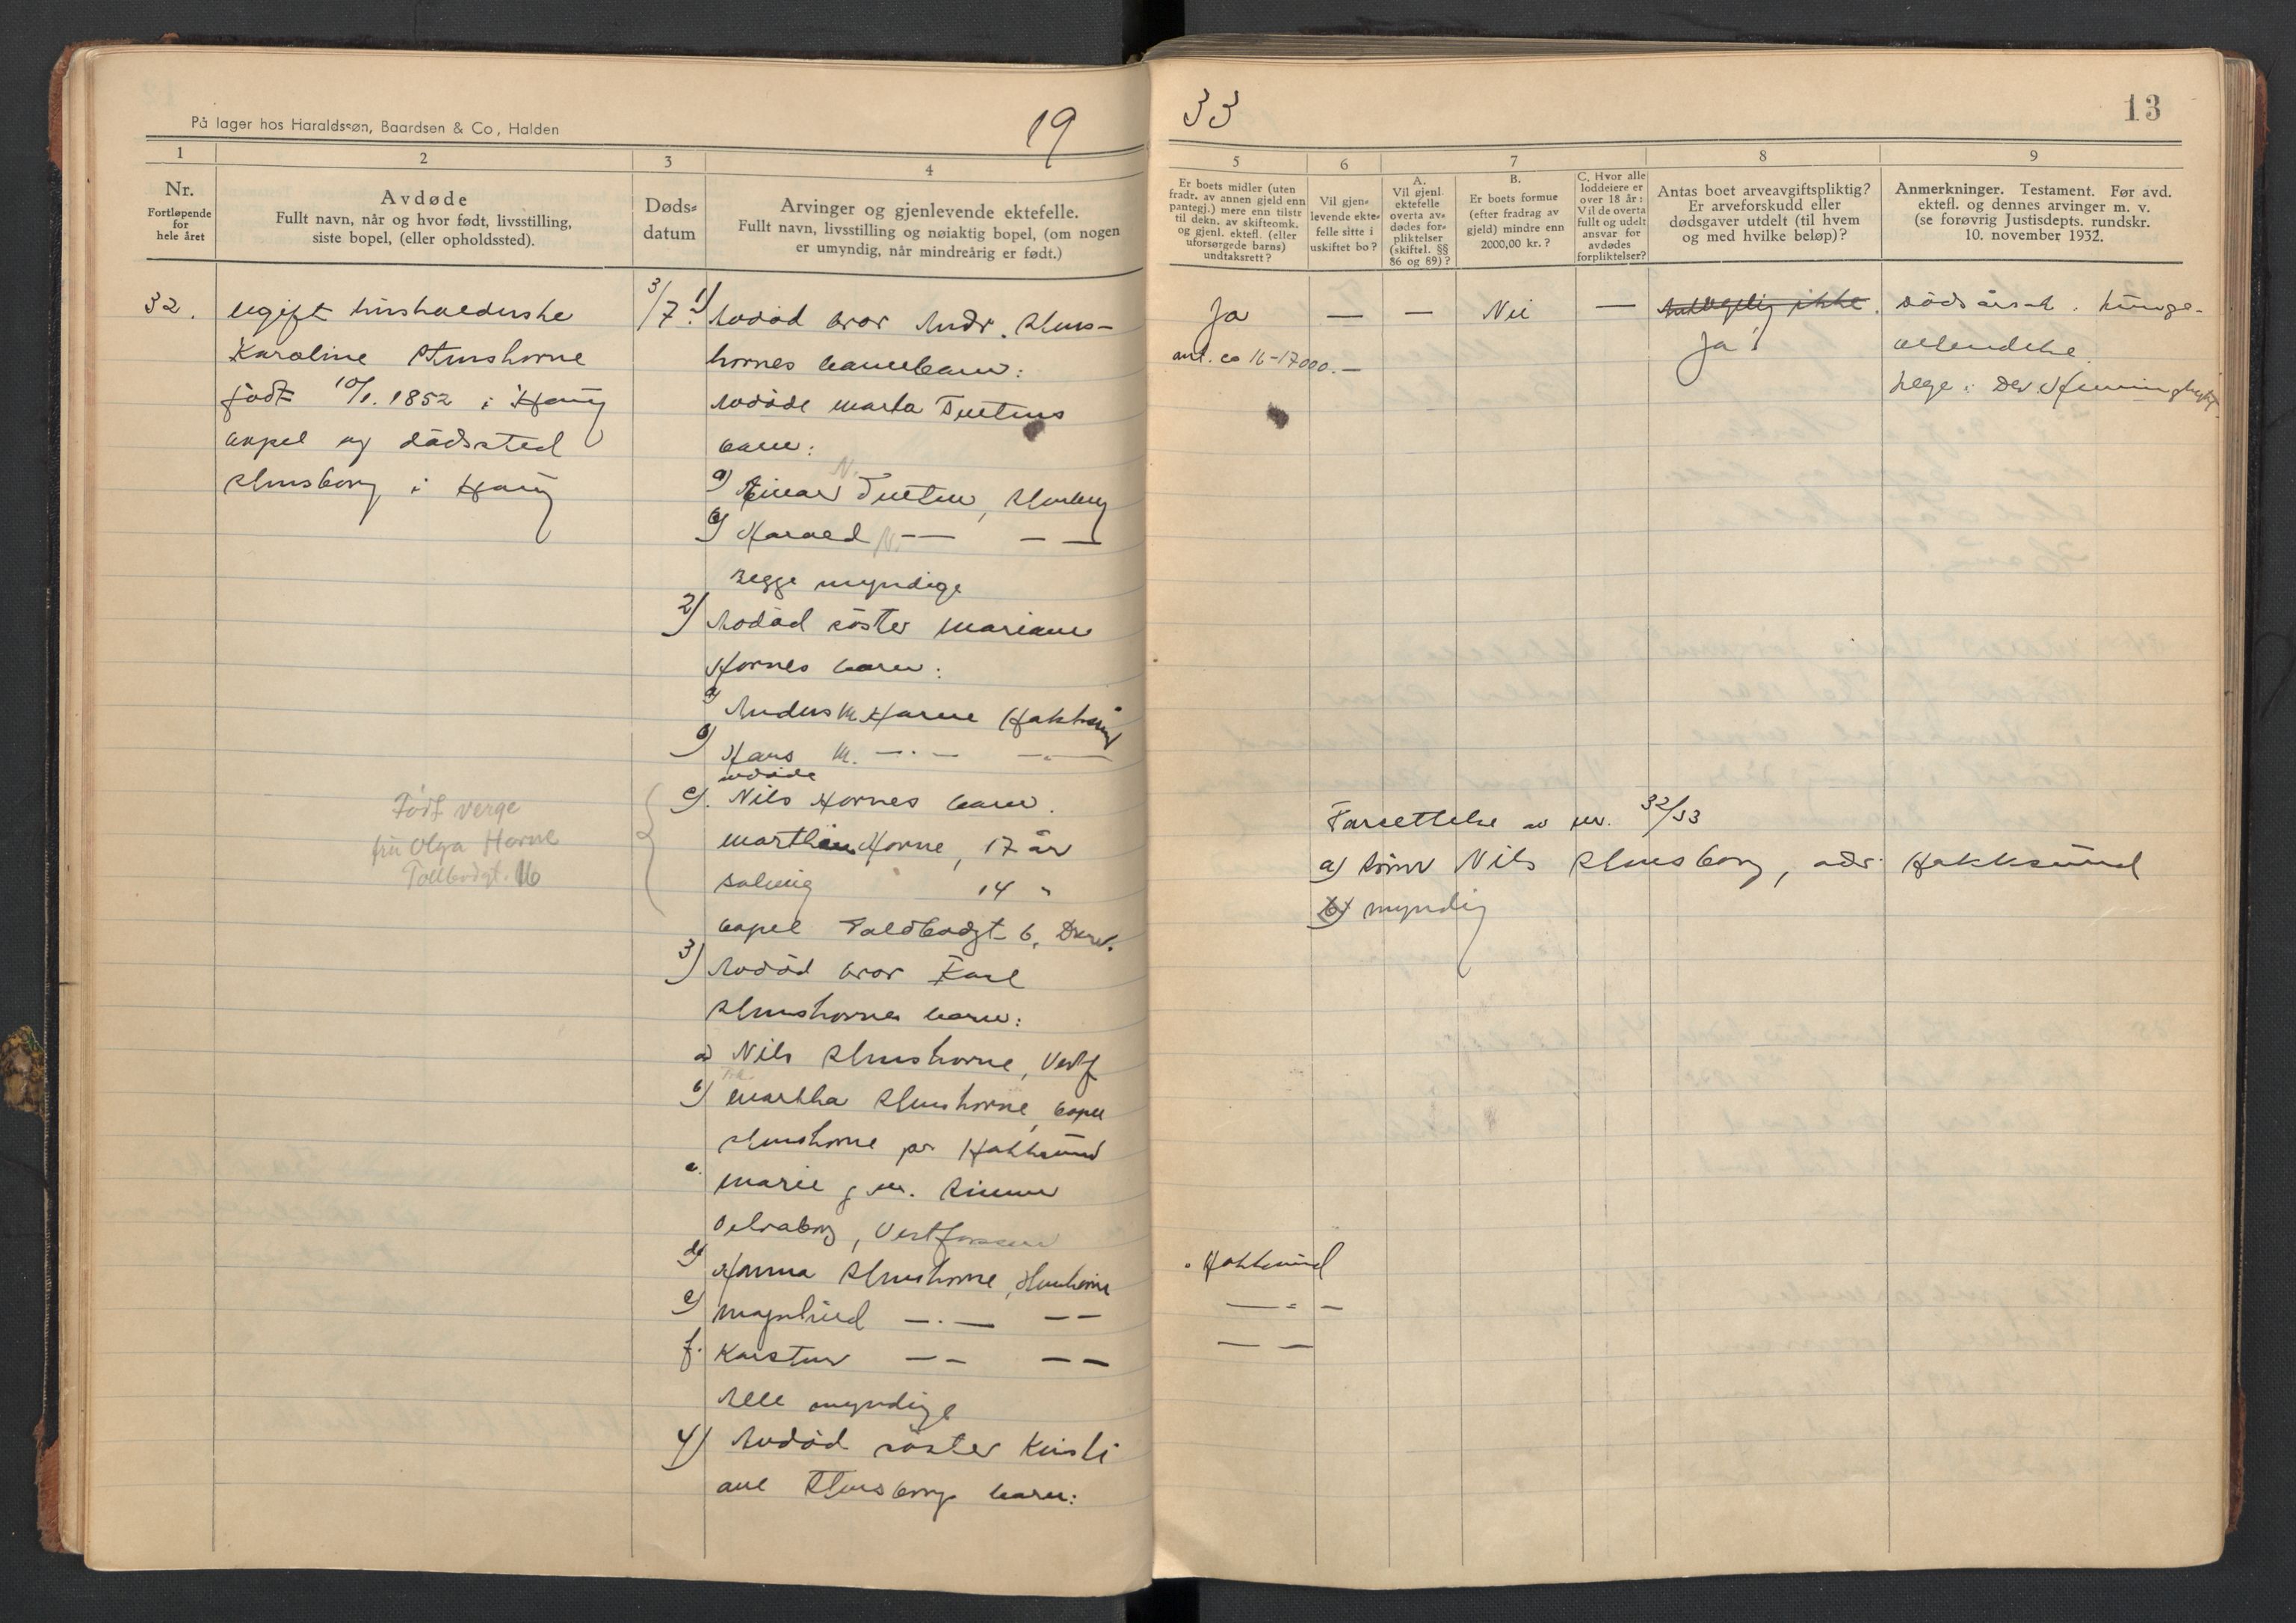 På lager hos Haraldssøn, Baardsen & Co, Halden
19
1
2
3
4
Nr.
Fortløpende
for
hele året
Avdøde
Fullt navn, når og hvor født, livsstilling,
siste bopel, (eller opholdssted).
Døds-
datum
Arvinger og gjenlevende ektefelle.
Fullt navn, livsstilling og nøiaktig bopel, (om nogen
er umyndig, når mindreårig er født.)
32.
ugift husholderske
Karoline
født 10/1. 1852 i Haug
bopel og dødssted
i Haug
3/7.
1) Avdød bror Andr.
hornes barnebarn:
Avdøde Marta Tvetens
barn:
a) Einar N. Tveten,
b) Harald N. — — —
Begge myndige
2) Avdød søster Mariane
Hornes barn:
a) Anders M. Horne Hokksund
b) Hans M. — . — — . —
avdøde
c). Nils Hornes barn.
Horne, 17 år
Solveig 14 "
bopel Toldbodgt 6, Drm.
Født verge
fru Olga Horne
Tollbodgt. 16
3) Avdød bror Karl
barn:
a) Nils
b) Martha bopel
pr Hokksund
c. Marie g. m.
Vestfossen
d) Hanna
e) Magnhild — . — — —
f. Karsten — — — —
Alle myndige
4) Avdød søster Kristi
ane barn:
33
13
5
6
7
8
9
Er boets midler (uten
fradr. av annen gjeld enn
pantegj.) mere enn tilstr
til dekn. av skifteomk.
og gjenl. ektefl. (eller
uforsørgede barns)
undtaksrett?
Vil gjen-
levende ekte-
felle sitte i
uskiftet bo?
A.
Vil gjenl.
ektefelle
overta av-
dødes for-
pliktelser
(skiftel. §§
86 og 89)?
B.
Er boets formue
(efter fradrag av
gjeld) mindre enn
2000,00 kr.?
C. Hvor alle
loddeiere er
over 18 år:
Vil de overta
fullt og udelt
ansvar for
avdødes
forpliktelser?
Antas boet arveavgiftspliktig?
Er arveforskudd eller
dødsgaver utdelt (til hvem
og med hvilke beløp)?
Anmerkninger. Testament. Før avd.
ektefl. og dennes arvinger m. v.
(se forøvrig Justisdepts. rundskr.
10. november 1932.
Ja
ant. ca 16-17000.—
—
—
Nei
—
ikke.
Ja!
Dødsårsak. Lunge-
betendelse.
Lege:
Fortsettelse av nr. 32/33
a) Sønn Nils adr. Hokksund
b) myndig
. Hokksund
— " —
— —